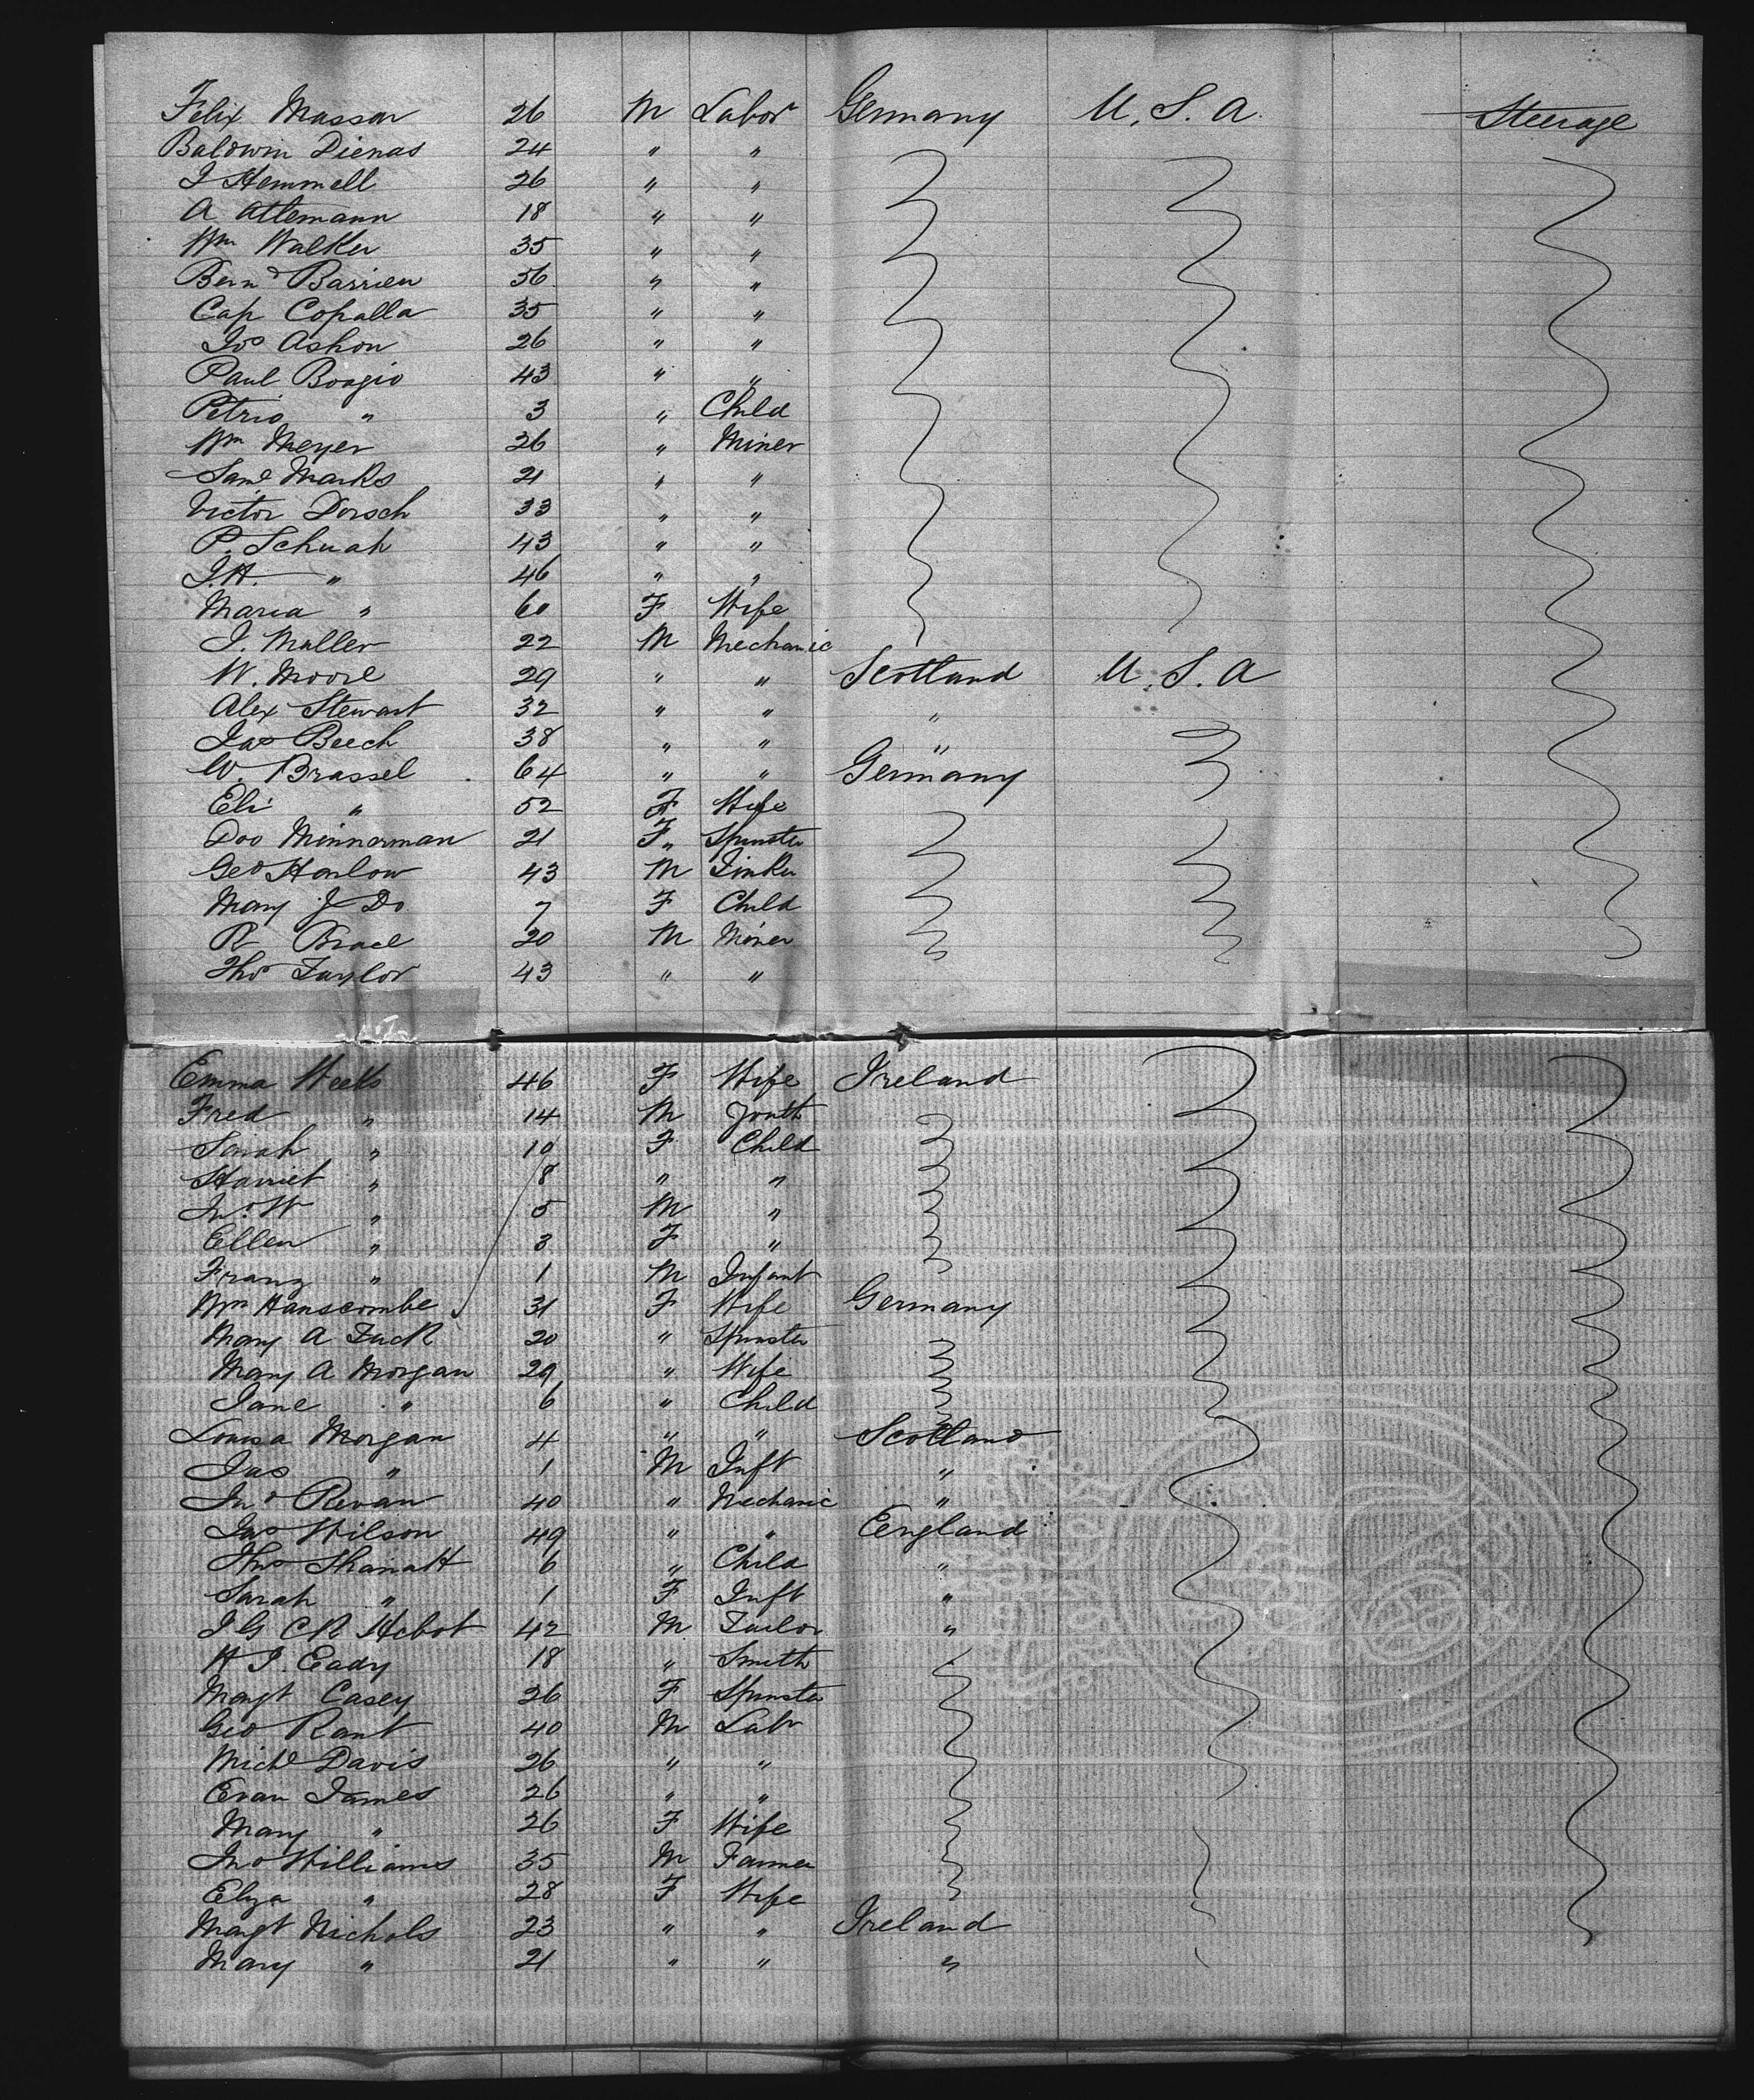 Felix Massar 26 M Labor Germany U.S.A. Steerage
Baldwin Dienas 24 " "
J Hemmell 26 " "
A Attemann 18 " "
Wm Walker 35 " "
Bernd Barrien 36 " "
Cap Copalla 35 " "
Jos Ashon 26 " "
Paul Boagio 43 " "
Petrio " 3 " Child
Wm Meyer 26 " Miner
Saml Marks 21 " "
Victor Dorsch 33 " "
P. Schuah 43 " "
J.H. " 46 " "
Maria " 60 F Wife
J. Muller 22 M Mechanic
W. Moore 29 " " Scotland U.S.A
Alex Stewart 32 " " "
Jas Beech 38 " " "
W. Brassel 64 " " Germany
Eli " 52 F Wife
Doo Minnerman 21 F " Spinster
Geo Harlow 43 M Tinker
Mary J Do 7 F Child
R Brace 20 M Miner
Thos Taylor 43 " "
Emma Weeks 46 F Wife Ireland
Fred " 14 M Youth
Sarah " 10 F Child
Harriet " 8 " "
Jno W " 5 M "
Ellen " 3 F "
Franz " 1 M Infant
Wm Hanscombe 31 F Wife Germany
Mary A Tuck 20 " Spinster
Mary A Morgan 29 " Wife
Jane " 6 " Child
Louisa Morgan 4 " " Scotland
Jas " 1 M Inft "
Jno Revan 40 " Mechanic "
Jas Wilson 49 " " Eengland
Thos Shanatt 6 " Child "
Sarah " 1 F Inft "
J G C R Hebot 42 M Tailor "
H J. Eady 18 " Smith
Margt Casey 26 F Spinster
Geo Rant 40 M Labr
Michl Davis 26 " "
Evan James 26 " "
Mary " 26 F Wife
Jno Williams 35 M Farmer
Elyza " 28 F Wife
Margt Nichols 23 " " Ireland
Mary " 21 " " "